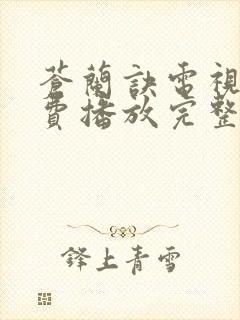 蒼蘭訣電視
費播放完整
鋒上青雪